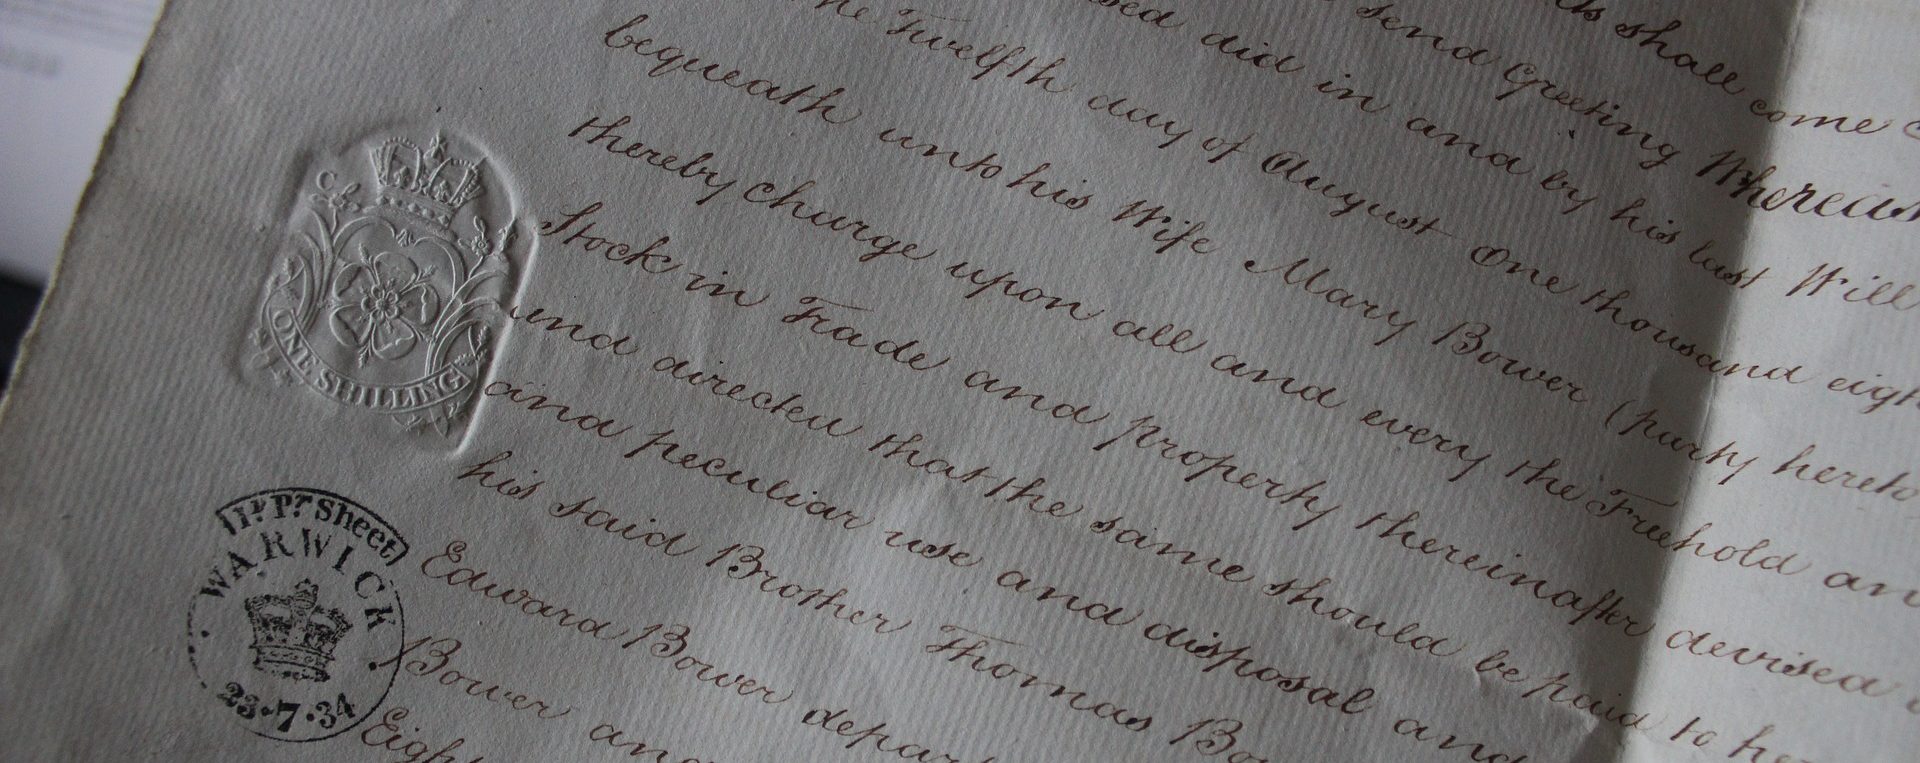 shall come
send Greeting Whereas
did in and by his last Will
the Twelfth day of August One thousand eigh
bequeath unto his Wife Mary Bower (party hereto
thereby charge upon all and every the Freehold an
Stock in Trade and property thereinafter devised
and directed that the same should be paid to her
and peculiar use and disposal and
his said Brother Thomas Bo
Edward Bower depar
Bower and
Eigh
ONE SHILLING
Pr Sheet
WARWICK
23·7·34